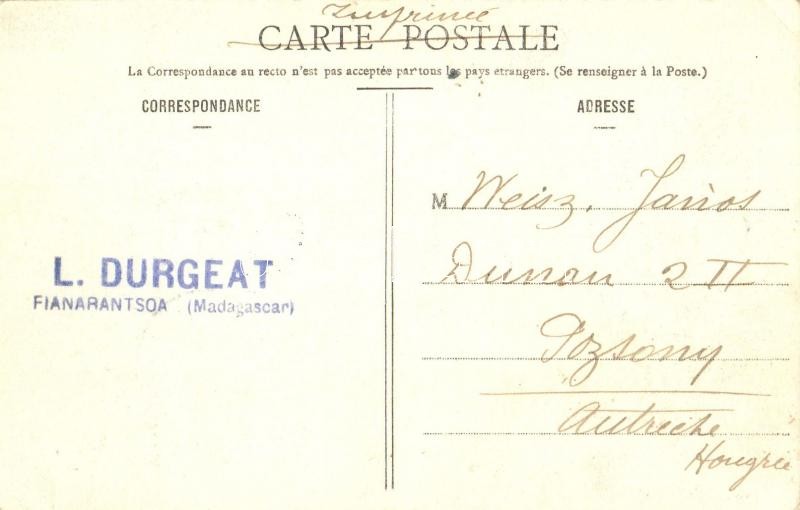 Imprimé
CARTE POSTALE
La Correspondance au recto n'est pas acceptée par tous les pays etrangers. (Se renseigner à la Poste.)
CORRESPONDANCE
ADRESSE
M Weisz, János
Dunsor 2 II
Pozsony
Autriche
Hongrie
L. DURGEAT
FIANARANTSOA (Madagascar)